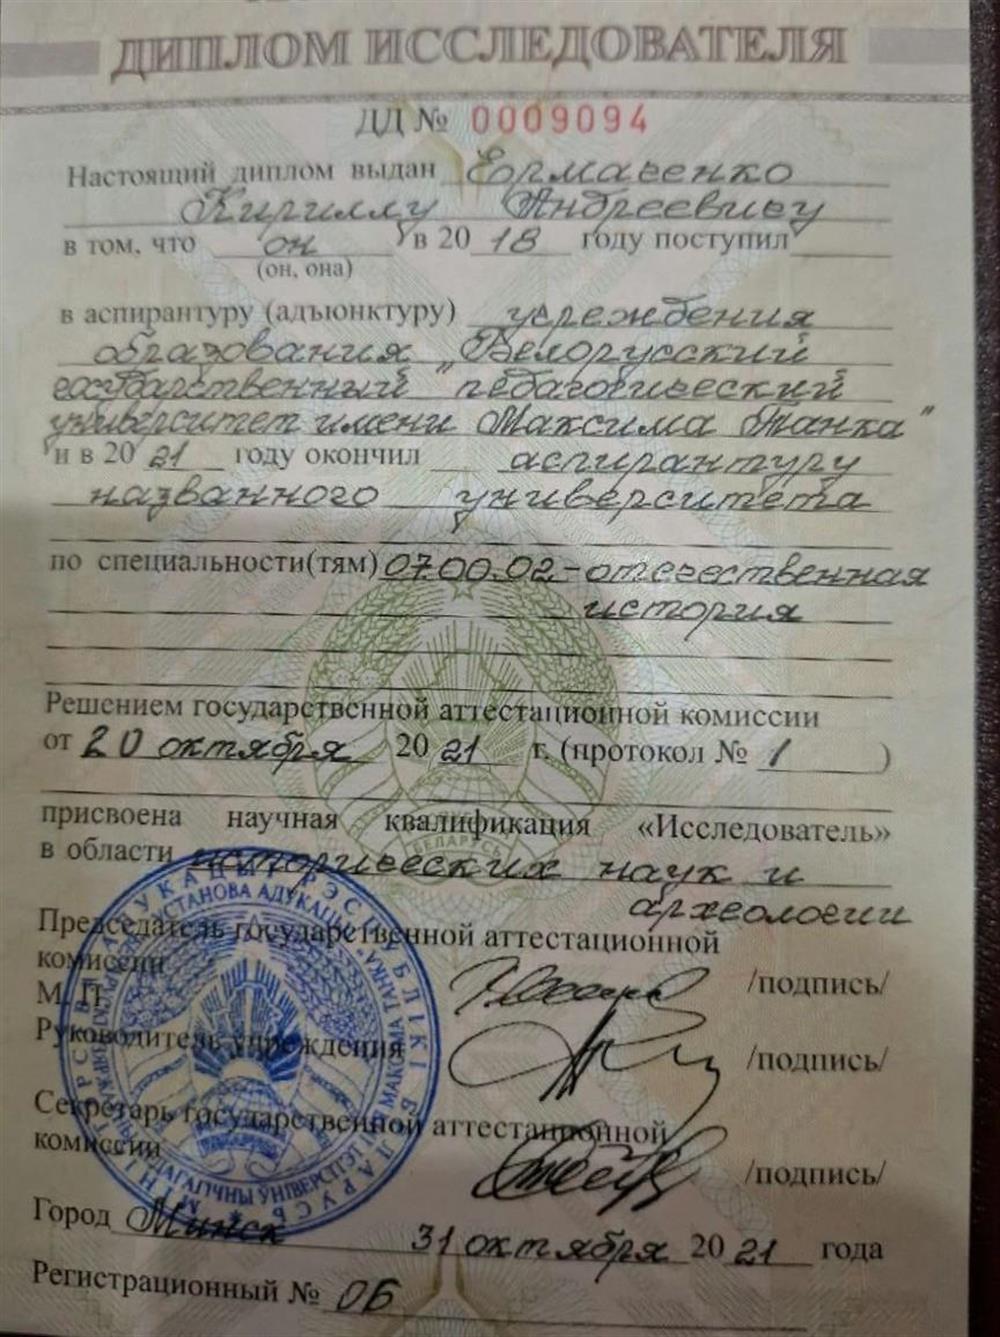 ДИПЛОМ ИССЛЕДОВАТЕЛЯ
ДД № 0009094
Настоящий диплом выдан Ермаченко
Кириллу Андреевичу
в том, что он в 2018 году поступил
(он, она)
в аспирантуру (адъюнктуру) учреждения
образования "Белорусский
государственный педагогический
университет имени Максима Танка"
и в 2021 году окончил аспирантуру
названного университета
по специальности(тям) 07.00.02 - отечественная
история
Решением государственной аттестационной комиссии
от 20 октября 2021 г. (протокол № 1 )
присвоена научная квалификация «Исследователь»
в области исторических наук и
археологии
Председатель государственной аттестационной
комиссии /подпись/
М. П.
Руководитель учреждения /подпись/
Секретарь государственной аттестационной
комиссии /подпись/
Город Минск 31 октября 2021 года
Регистрационный № 06
БЕЛАРУСЬ